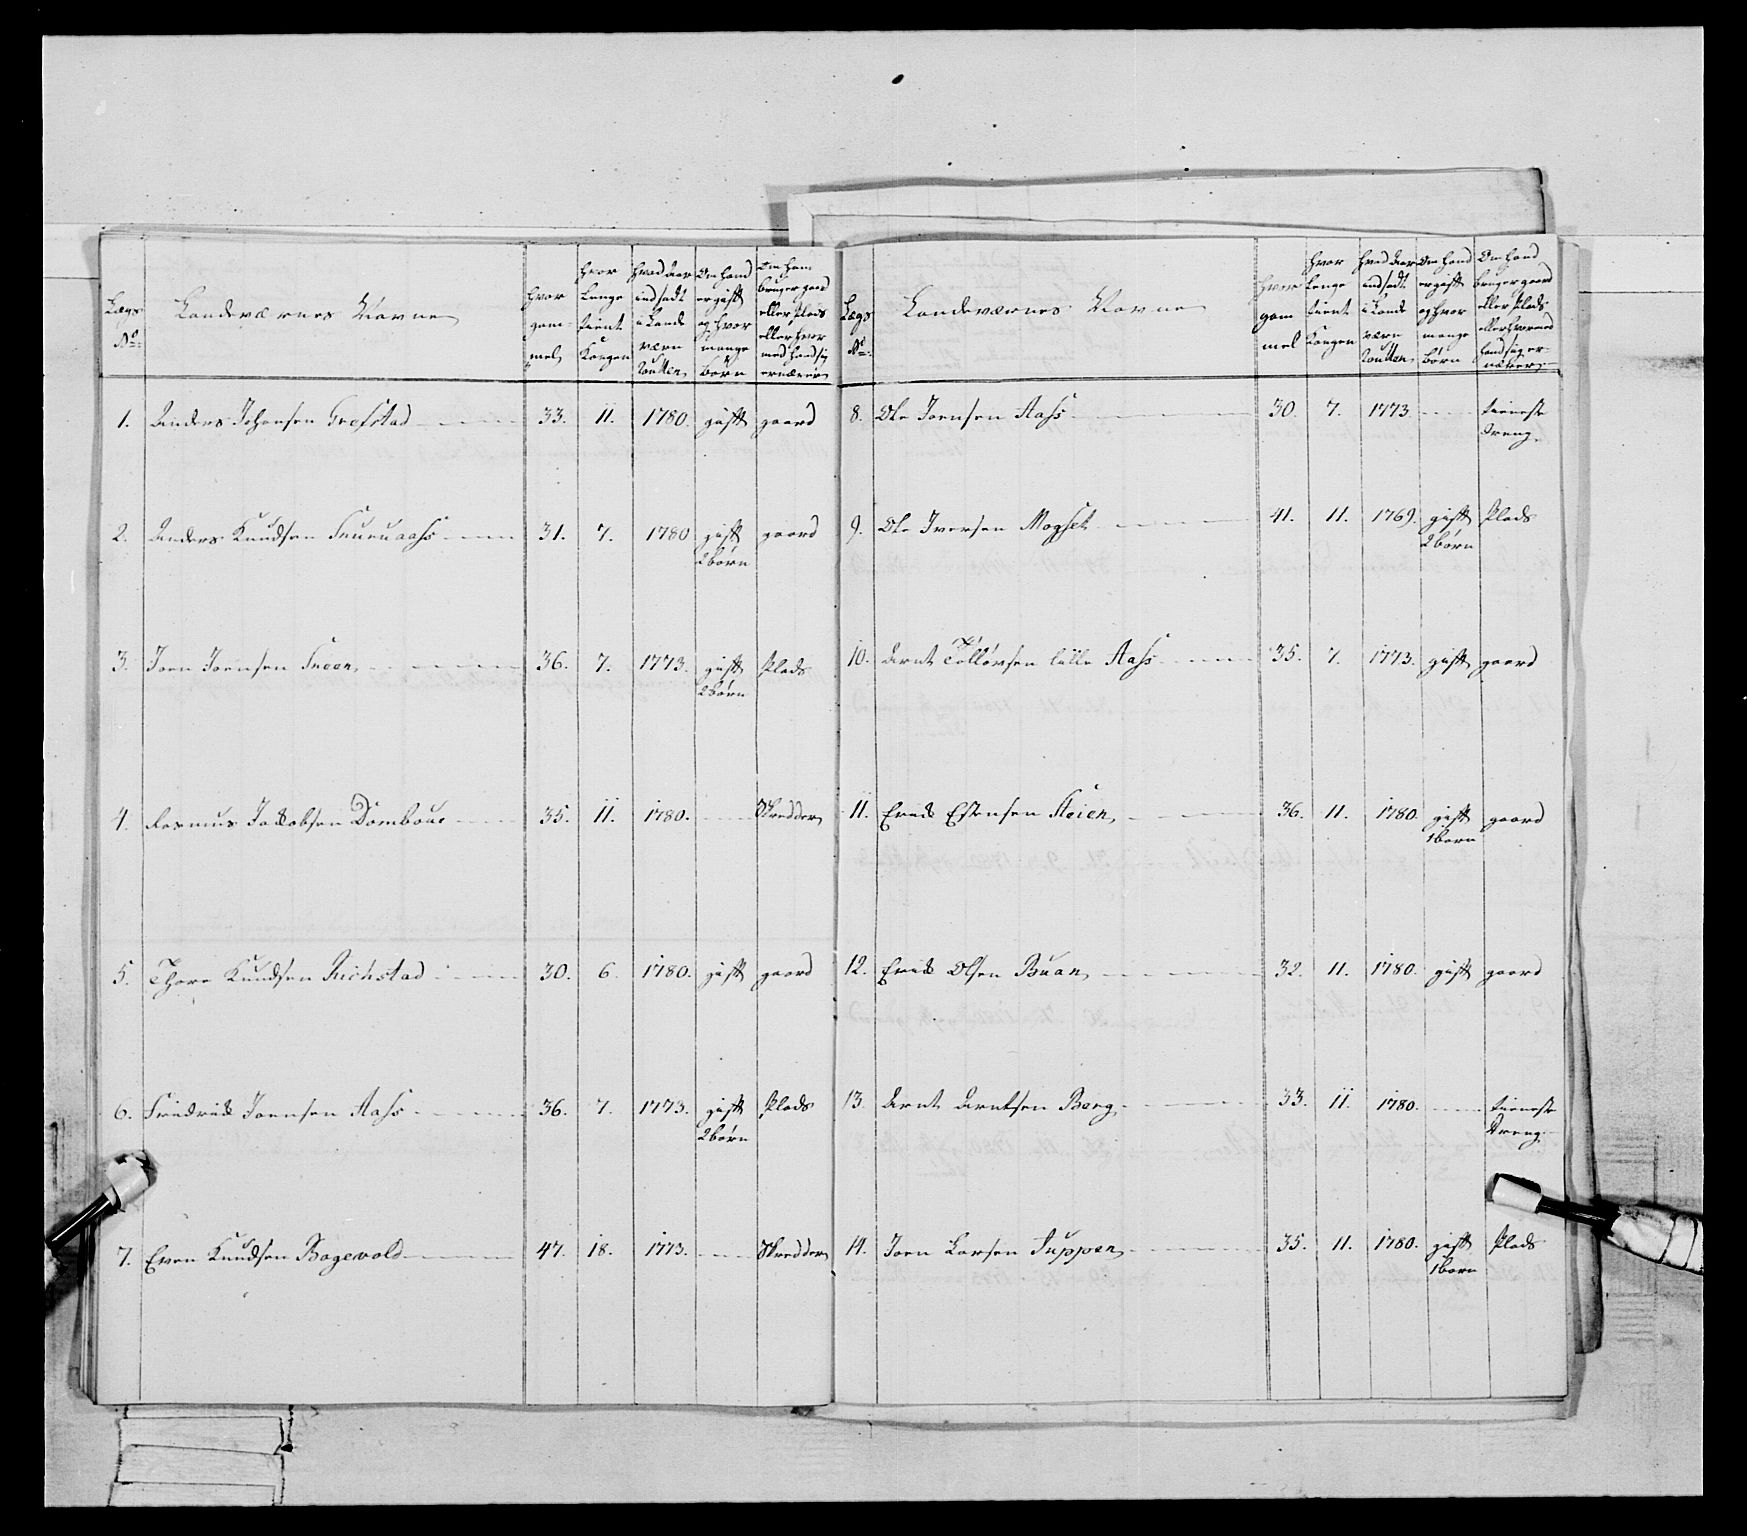 Lægs No:
Landeværnes Navne
hvor gammel
hvor Længe tient Kongen
hvad Aar indsadt i Landeværn Roullen
Om hand er gift og hvor mange børn
Om ham bruger gaard eller Plads eller hvor med hand sig ernærer
1. Anders Johansen Grefstad 33. 11. 1780. gift gaard
2. Anders Knudsen 31. 7. 1780 gift gaard
2 børn
3. Joen Joensen 36. 7. 1773. gift Plads
2 børn
4. Rasmus Jacobsen 35. 11. 1780. Skredder
5. Thore Knudsen Richstad 30. 6. 1780. gift gaard
6. Fridrick Joensen Aass 36. 7. 1773. gift Plads
2 børn
7. Even Knudsen Bogevold 47. 18. 1773. Skredder
Lægs No:
Landeværnes Navne
hvor gammel
hvor Længe tient Kongen
hvad Aar indsadt i Landeværn Roullen
Om hand er gift og hvor mange børn
Om hand bruger gaard eller Plads eller hvormed hand sig ernærer
8. Ole Joensen Aass 30. 7. 1773. tieneste
dreng
9. Ole Iversen Mogset 41. 11. 1769. gift Plads
2 børn
10. Arnt Tølløvsen lille Aass 35. 7. 1773. gift gaard
11. Erick Estensen Steien 36. 11. 1780. gift gaard
1 barn
12. Erick Olsen Buan 32. 11. 1780. gift gaard
13. Arnt Arntsen Berg 33. 11. 1780. tieneste
Dreng
14. Joen Larsen 35. 11. 1780. gift Plads
1 barn